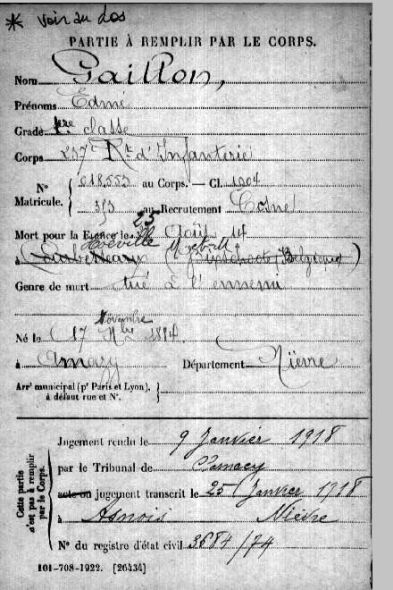 * voir au dos
PARTIE À REMPLIR PAR LE CORPS.
Nom Paillon,
Prénoms Edmé
Grade 1ère classe
Corps Rt d'Infanterie
N° Matricule. { 018553 au Corps. — Cl. 1904
au Recrutement Cosne
Mort pour la France le 25 Août 14
à Hoéville
Genre de mort tué à l'ennemi
Novembre
Né le 17
à Amazy Département Nièvre
Arrt municipal (pr Paris et Lyon), à défaut rue et N°.
Cette partie n'est pas à remplir par le Corps.
Jugement rendu le 9 Janvier 1918
par le Tribunal de Clamecy
acte ou jugement transcrit le 25 Janvier 1918
à Asnois Nièvre
N° du registre d'état civil 3684/74
101-708-1922. [26434]